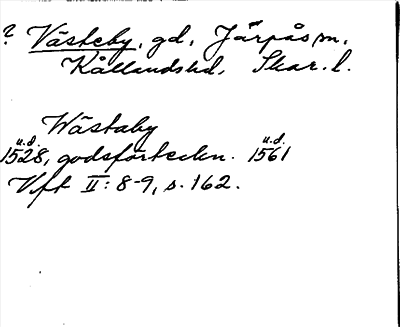 ? Västeby, gd, Järpås sn,
Kållands hd, Skar. l.
Wästaby
u.d. u.d.
1528, godsförteckn. 1561
Vft II: 8-9, s. 162.